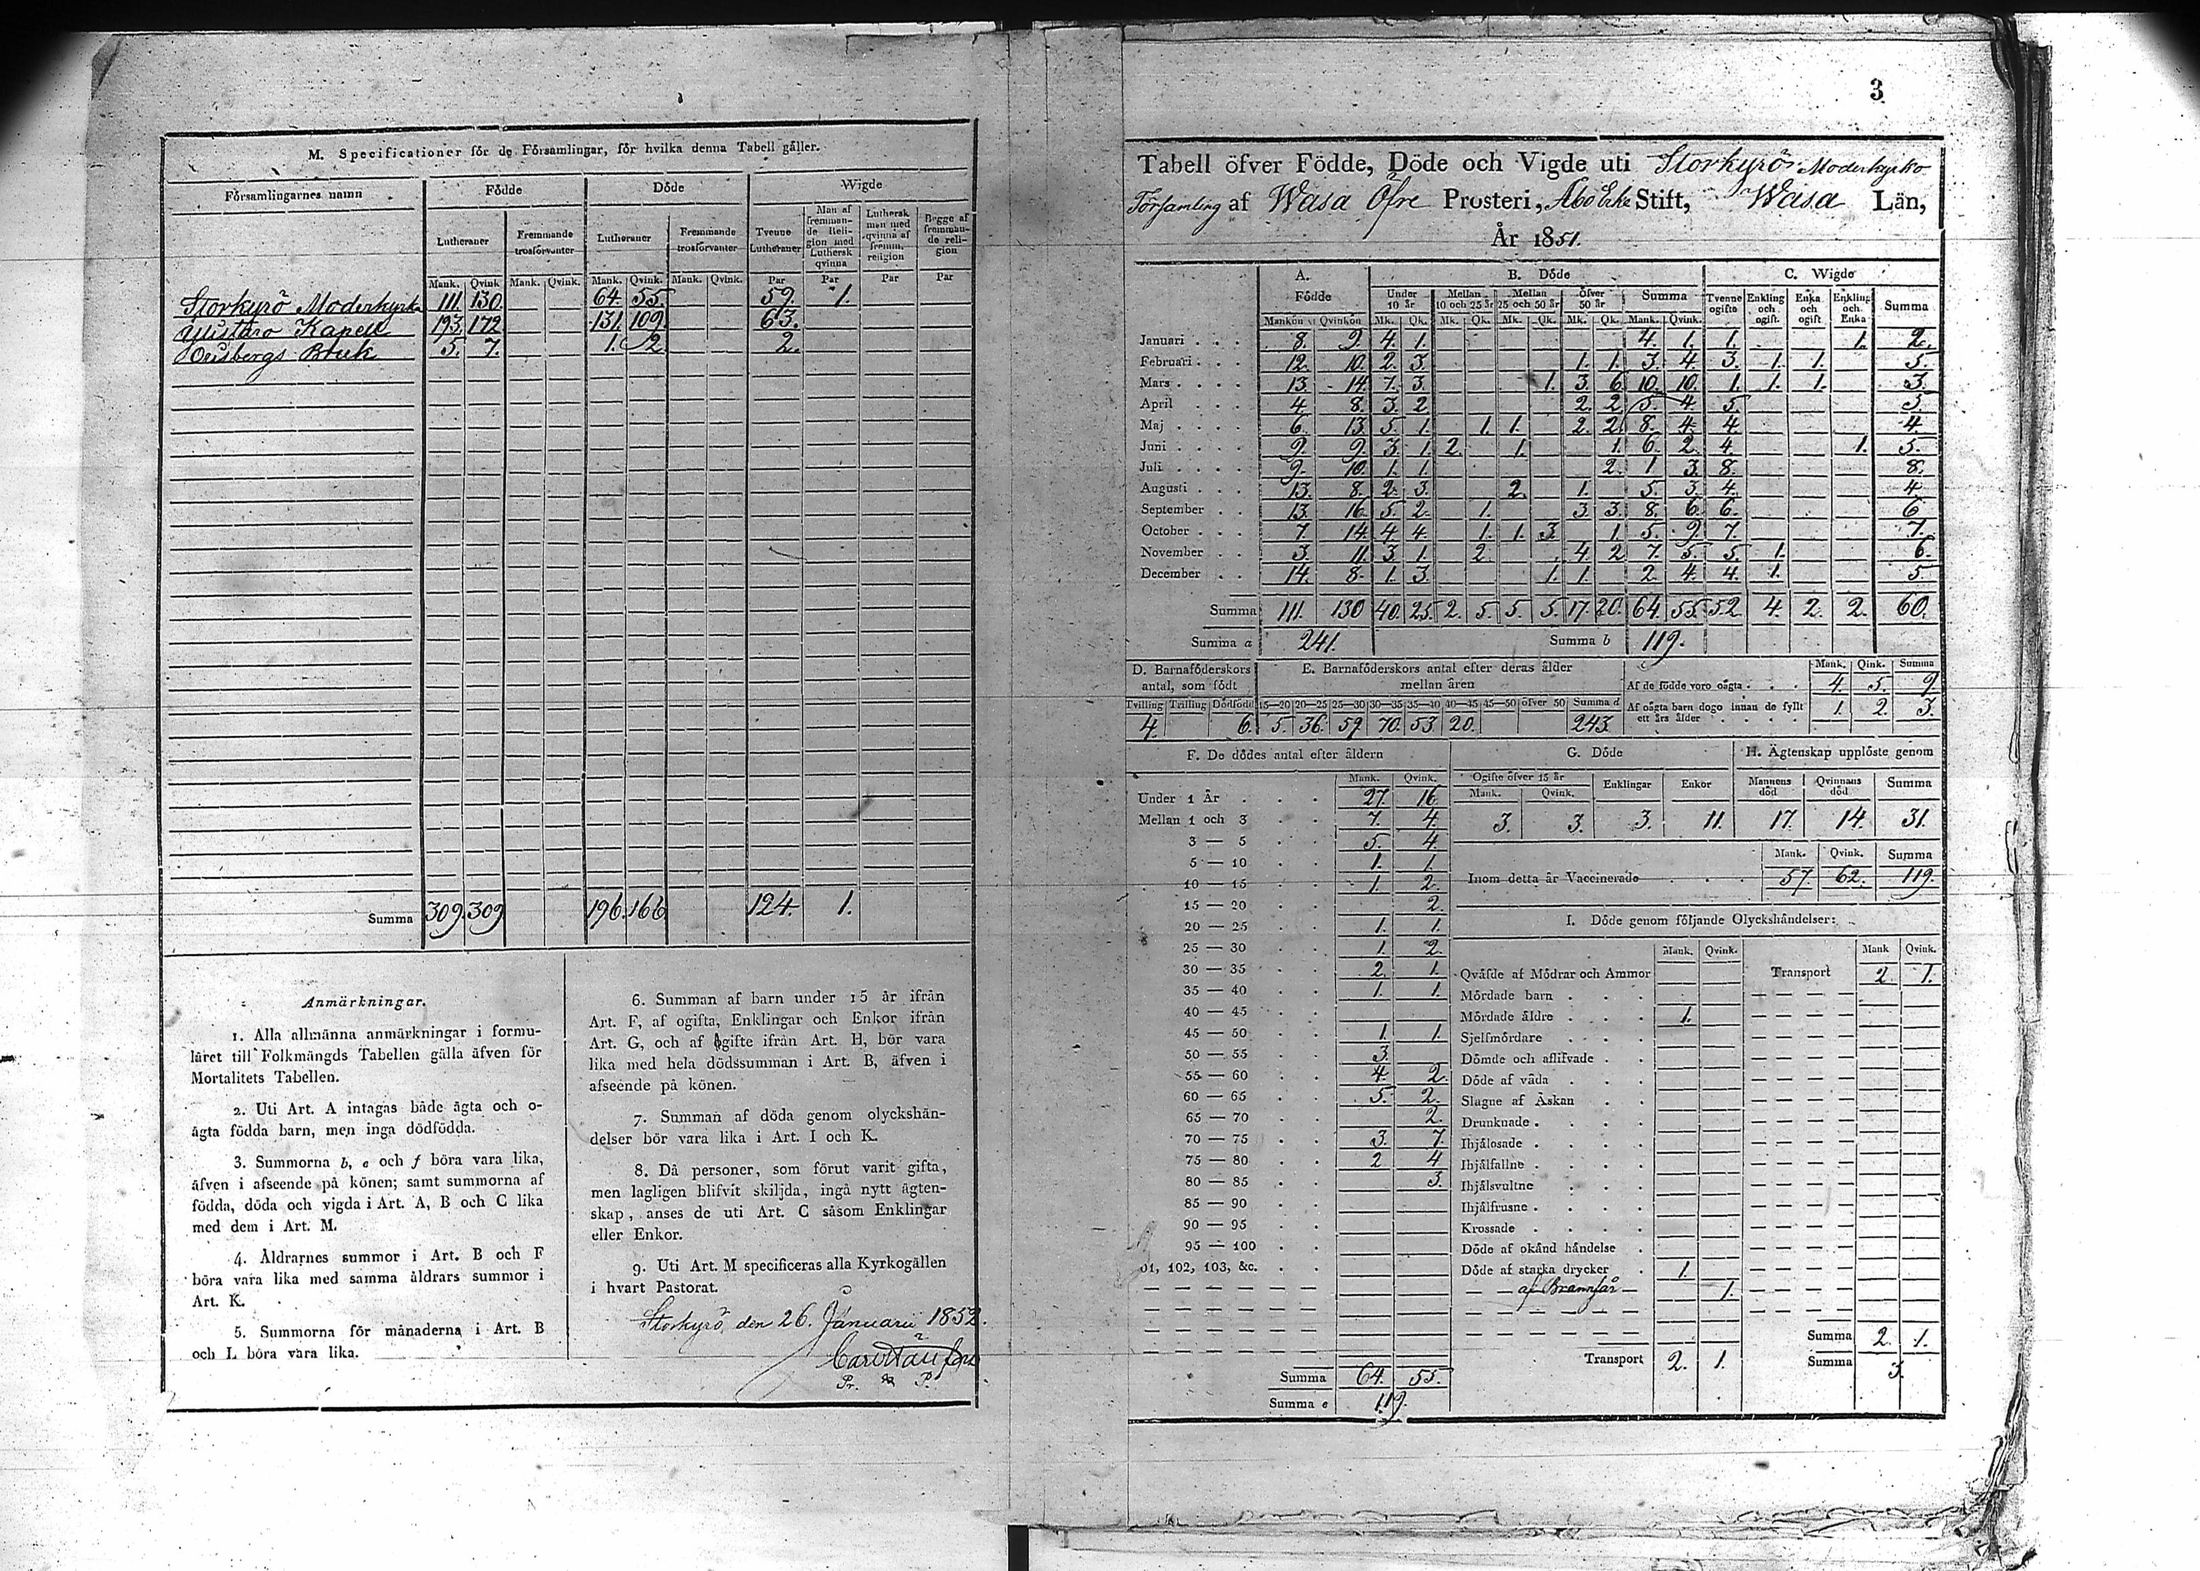 M. Specificationer för de Församlingar, för hvilka denna Tabell gäller.
Församlingarnes namn Födde Döde Wigde
Lutheraner Fremmande trosförvanter Lutheraner Fremmande trosförvanter Tvenne Lutheraner Man af fremmande Religion med Luthersk qvinna Luthersk men med qvinna af fremm. religion Begge af fremmande religion
Mank. Qvink Mank. Qvink. Mank. Qvink. Mank. Qvink. Par Par Par Par
Storkyrö Moderkyrka 111. 130. 64. 55. 59. 1.
Kapell 193. 172 131. 109. 63.
Bruk 5. 7. 1. 2 2.
Summa 309. 309 196. 166 124. 1.
Anmärkningar.
1. Alla allmänna anmärkningar i formu-
läret till Folkmängds Tabellen gälla äfven för
Mortalitets Tabellen.
2. Uti Art. A intagas både ägta och o-
ägta födda barn, men inga dödfödda.
3. Summorna b, e och f böra vara lika,
äfven i afseende på könen; samt summorna af
födda, döda och vigda i Art. A, B och C lika
med dem i Art. M.
4. Åldrarnes summor i Art. B och F
böra vara lika med samma åldrars summor i
Art. K.
5. Summorna för månaderna i Art. B
och L böra vara lika.
6. Summan af barn under 15 år ifrån
Art. F, af ogifta, Enklingar och Enkor ifrån
Art. G, och af gifte ifrån Art. H, bör vara
lika med hela dödssumman i Art. B, äfven i
afseende på könen.
7. Summan af döda genom olyckshän-
delser bör vara lika i Art. I och K.
8. Då personer, som förut varit gifta,
men lagligen blifvit skiljda, ingå nytt ägten-
skap, anses de uti Art. C såsom Enklingar
eller Enkor.
9. Uti Art. M specificeras alla Kyrkogällen
i hvart Pastorat.
Storkyrö, den 26. Januarii 1852.
3
Tabell öfver Födde, Döde och Vigde uti Storkyrö Moderkyrko
Församling af Wasa Öfre Prosteri, Åbo Erke Stift, Wasa Län,
År 1851.
A. Födde B. Döde C. Wigde
Under 10 år Mellan 10 och 25 år Mellan 25 och 50 år Öfver 50 år Summa Tvenne ogifte Enkling och ogift. Enka och ogift Enkling och Enka Summa
Mankön Qvinkön Mk. Qk. Mk. Qk. Mk. Qk. Mk. Qk. Mank. Qvink.
Januari 8. 9. 4. 1. 4. 1. 1. 1. 2.
Februari 12. 10. 2. 3. 1. 1. 3. 4. 3. 1. 1. 5.
Mars 13. 14. 7. 3. 1. 3. 6. 10. 10. 1. 1. 1. 3.
April 4. 8. 3. 2. 2. 2. 5. 4. 5. 5.
Maj 6. 13. 5. 1. 1. 1. 2. 2. 8. 4. 4. 4.
Juni 9. 9. 3. 1. 2. 1. 1. 6. 2. 4. 1. 5.
Juli 9. 10. 1. 1. 2. 1 3. 8. 8.
Augusti 13. 8. 2. 3. 2. 1. 5. 3. 4. 4.
September 13. 16. 5. 2. 1. 3 3. 8. 6. 6. 6
October 7. 14. 4. 4. 1. 1. 3. 1. 5. 9. 7. 7.
November 3. 11. 3. 1. 2. 4. 2. 7. 5. 5. 1. 6.
December 14. 8. 1. 3. 1. 1. 2. 4. 4. 1. 5.
Summa 111. 130 40. 25. 2. 5. 5. 5. 17. 20. 64. 55. 52. 4. 2. 2. 60.
Summa a 241. Summa b 119.
D. Barnaföderskors antal, som födt
Tvilling Trilling Dödfödt
4. 6.
E. Barnaföderskors antal efter deras ålder mellan åren
15—20 20—25 25—30 30—35 35—40 40—45 45—50 öfver 50 Summa d
5. 36. 59. 70. 53. 20. 243.
Mank. Qink. Summa
Af de födde voro oägta 4. 5. 9.
Af oägta barn dogo innan de fyllt ett års ålder 1. 2. 3.
F. De dödes antal efter åldern
Mank. Qvink.
Under 1 År 27. 16.
Mellan 1 och 3 7. 4.
3 — 5 5. 4.
5 — 10 1. 1.
10 — 15 1. 2.
15 — 20 2.
20 — 25 1. 1.
25 — 30 1. 2.
30 — 35 2. 1.
35 — 40 1. 1.
40 — 45
45 — 50 1. 1.
50 — 55 3.
55 — 60 4. 2.
60 — 65 5. 2.
65 — 70 2.
70 — 75 3. 7.
75 — 80 2 4
80 — 85 3.
85 — 90
90 — 95
95 — 100
01, 102, 103, &c.
Summa 64. 55.
Summa e 119.
G. Döde
Ogifte öfver 15 år Enklingar Enkor
Mank. Qvink.
3. 3. 3. 11.
H. Ägtenskap upplöste genom
Mannens död Qvinnans död Summa
17. 14. 31.
Mank. Qvink. Summa
Inom detta år Vaccinerade 57. 62. 119.
I. Döde genom följande Olyckshändelser:
Mank. Qvink. Mank Qvink.
Qväfde af Mödrar och Ammor Transport 2. 1.
Mördade barn
Mördade äldre 1.
Sjelfmördare
Dömde och aflifvade
Döde af våda
Slagne af Åskan
Drunknade
Ihjälosade
Ihjälfallne
Ihjälsvultne
Ihjälfrusne
Krossade
Döde af okänd händelse
Döde af starka drycker 1.
af Brännsår 1.
Summa 2. 1.
Transport 2. 1. Summa 3.